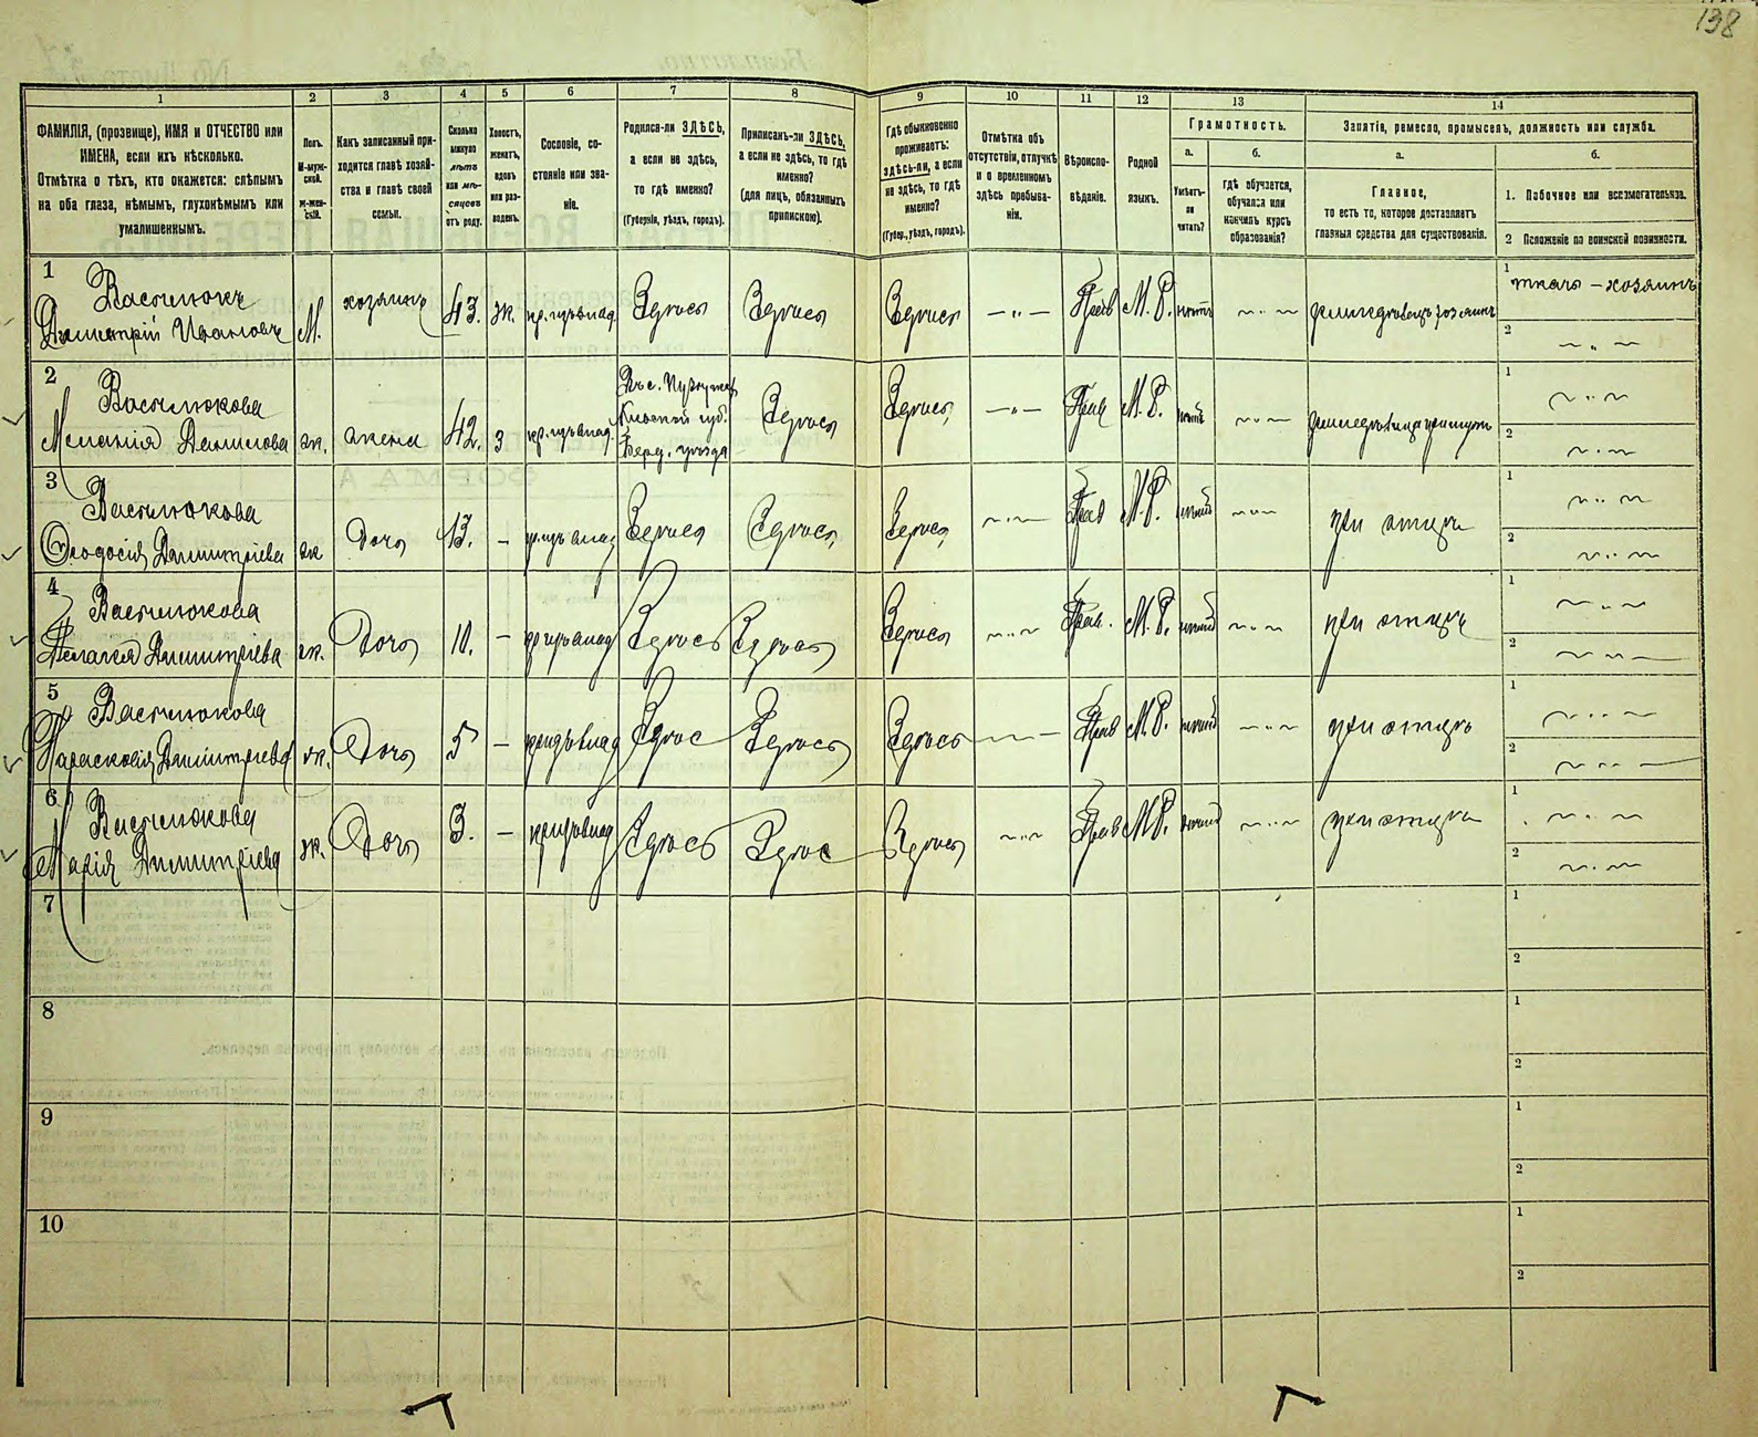 138
1
2
3
4
5
6
7
8
9
10
11
12
13
14
ФАМИЛІЯ, (прозвище), ИМЯ и ОТЧЕСТВО или
ИМЕНА, если ихъ нѣсколько.
Отмѣтка о тѣхъ, кто окажется: слѣпымъ
на оба глаза, нѣмымъ, глухонѣмымъ или
умалишеннымъ.
Полъ.
М-муж-
ской.
Ж-жен-
скій.
Какъ записанный при-
ходится главѣ хозяй-
ства и главѣ своей
семьи.
Сколько
минуло
лѣтъ
или мѣ-
сяцевъ
отъ роду.
Холостъ,
женатъ,
вдовъ
или раз-
веденъ.
Сословіе, со-
стояніе или зва-
ніе.
Родился-ли ЗДѢСЬ,
а если не здѣсь,
то гдѣ именно?
(Губернія, уѣздъ, городъ).
Приписанъ-ли ЗДѢСЬ,
а если не здѣсь, то гдѣ
именно?
(для лицъ, обязанныхъ
припискою).
Гдѣ обыкновенно
проживаетъ:
здѣсь-ли, а если
не здѣсь, то гдѣ
именно?
(Губер., уѣздъ, городъ).
Отмѣтка объ
отсутствіи, отлучкѣ
и о временномъ
здѣсь пребыва-
ніи.
Вѣроиспо-
вѣданіе.
Родной
языкъ.
Грамотность.
а.
Умѣетъ-
ли
читать?
б.
гдѣ обучается,
обучался или
кончилъ курсъ
образованія?
Занятіе, ремесло, промыселъ, должность или служба.
а.
Главное,
то есть то, которое доставляетъ
главныя средства для существованія.
б.
1. Побочное или вспомогательное.
2 Положеніе по воинской повинности.
1
Василюкъ
Димитрій Ивановъ
М.
хозяинъ
43.
ж.
Здѣсь
Здѣсь
Здѣсь
Прав
М. Р.
нѣтъ
1
ткачъ - хозяинъ
2
2
Василюкова
Меланія Данилова
ж.
жена
42.
з
Кіевской губ.
Берд. уѣзда
Здѣсь
Здѣсь
Прав
М. Р.
1
2
3
Василюкова
Ѳеодосія Димитріева
ж
Дочь
13.
-
Здѣсь
Здѣсь
Здѣсь
Прав
М. Р.
при отцѣ
1
2
4
Василюкова
Пелагея Димитріева
ж.
Дочь
10.
-
Здѣсь
Здѣсь
Здѣсь
Прав.
М. Р.
при отцѣ
1
2
5
Василюкова
Парасковія Димитріева
ж.
Дочь
5
-
Здѣсь
Здѣсь
Здѣсь
Прав
М. Р.
при отцѣ
1
2
6
Василюкова
Марія Димитріева
ж.
Дочь
3.
-
Здѣсь
Здѣсь
Здѣсь
Прав
М. Р.
при отцѣ
1
2
7
1
2
8
1
2
9
1
2
10
1
2